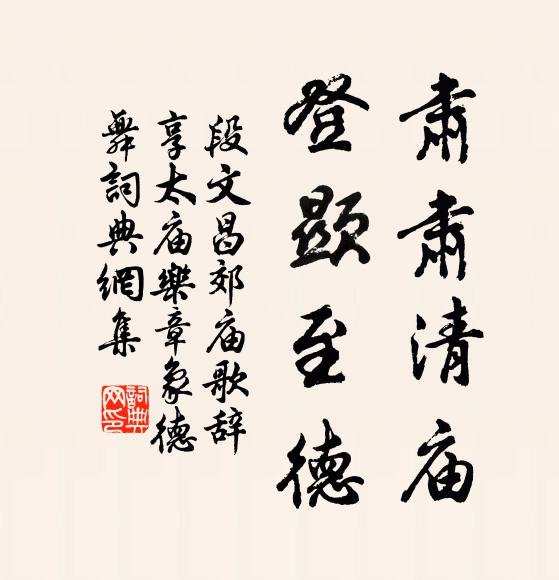 肅肅清庙
登顯至德
段文昌郊庙歌辞
享太庙樂章象德
舞詞典網集
詞典
网印